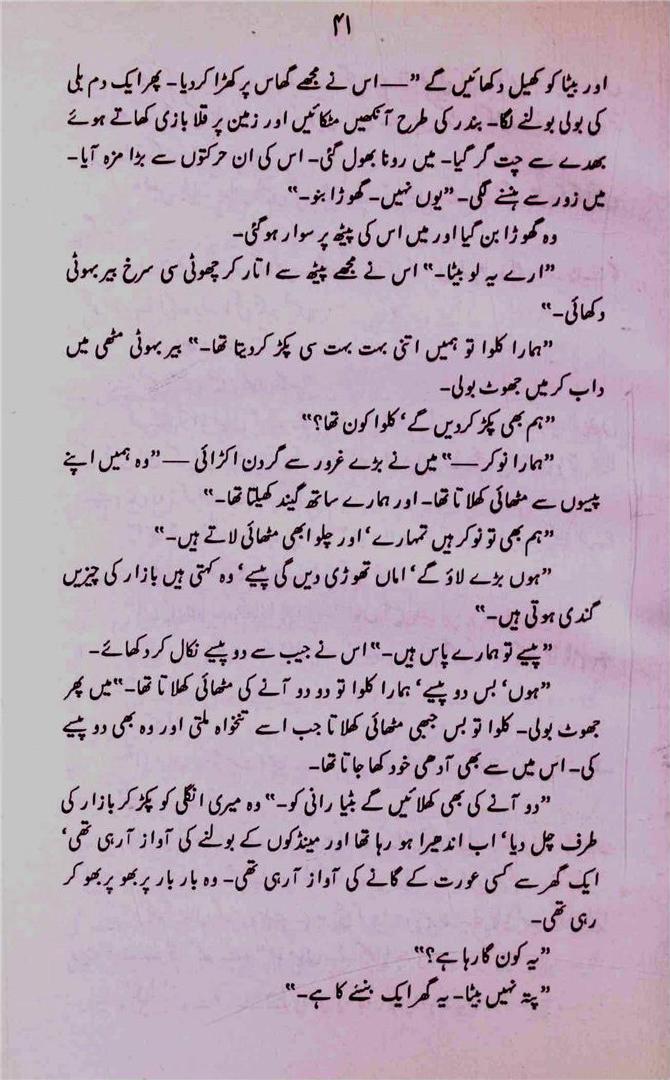 ۴۱
اور بیٹا کو کھیل دکھائیں گے" — اس نے مجھے گھاس پر کھڑا کردیا۔ پھر ایک دم بلی
کی بولی بولنے لگا۔ بندر کی طرح آنکھیں مٹکائیں اور زمین پر قلابازی کھاتے ہوئے
بھدے سے چت گر گیا۔ میں رونا بھول گئی۔ اس کی ان حرکتوں سے بڑا مزہ آیا۔
میں زور سے ہنسنے لگی۔ "یوں نہیں۔ گھوڑا بنو۔"
وہ گھوڑا بن گیا اور میں اس کی پیٹھ پر سوار ہوگئی۔
"ارے یہ لو بیٹا۔" اس نے مجھے پیٹھ سے اتار کر چھوٹی سی سرخ بیر بہوٹی
دکھائی۔"
"ہمارا کلوا تو ہمیں اتنی بہت بہت سی پکڑ کردیتا تھا۔" بیر بہوٹی مٹھی میں
داب کر میں جھوٹ بولی۔
"ہم بھی پکڑ کردیں گے، کلوا کون تھا؟"
"ہمارا نوکر —" میں نے بڑے غرور سے گردن اکڑائی — "وہ ہمیں اپنے
پیسوں سے مٹھائی کھلاتا تھا۔ اور ہمارے ساتھ گیند کھیلتا تھا۔"
"ہم بھی تو نوکر ہیں تمہارے، اور چلو ابھی مٹھائی لاتے ہیں۔"
"ہوں بڑے لاؤ گے، اماں تھوڑی دیں گی پیسے، وہ کہتی ہیں بازار کی چیزیں
گندی ہوتی ہیں۔"
"پیسے تو ہمارے پاس ہیں۔" اس نے جیب سے دو پیسے نکال کر دکھائے۔
"ہوں، بس دو پیسے، ہمارا کلوا تو دو دو آنے کی مٹھائی کھلاتا تھا۔" میں پھر
جھوٹ بولی۔ کلوا تو بس جبھی مٹھائی کھلاتا جب اسے تنخواہ ملتی اور وہ بھی دو پیسے
کی۔ اس میں سے بھی آدھی خود کھا جاتا تھا۔
"دو آنے کی بھی کھلائیں گے بٹیا رانی کو۔" وہ میری انگلی کو پکڑ کر بازار کی
طرف چل دیا، اب اندھیرا ہو رہا تھا اور مینڈکوں کے بولنے کی آواز آرہی تھی،
ایک گھر سے کسی عورت کے گانے کی آواز آرہی تھی۔ وہ بار بار پربھو پربھو کر
رہی تھی۔
"یہ کون گا رہا ہے؟"
"پتہ نہیں بیٹا۔ یہ گھر ایک بننے کا ہے۔"